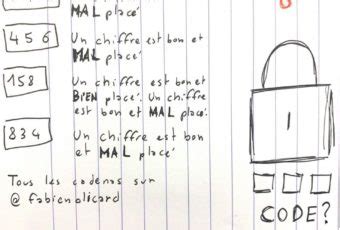 MAL placé
456
Un chiffre est bon et
MAL placé
158
Un chiffre est bon et
BIEN placé. Un chiffre
est bon et MAL placé.
834
Un chiffre est bon
et MAL placé
Tous les cadenas sur
@fabienolicard
CODE?